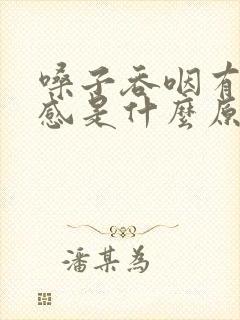 嗓子吞咽有
感是什麼原
潘某為